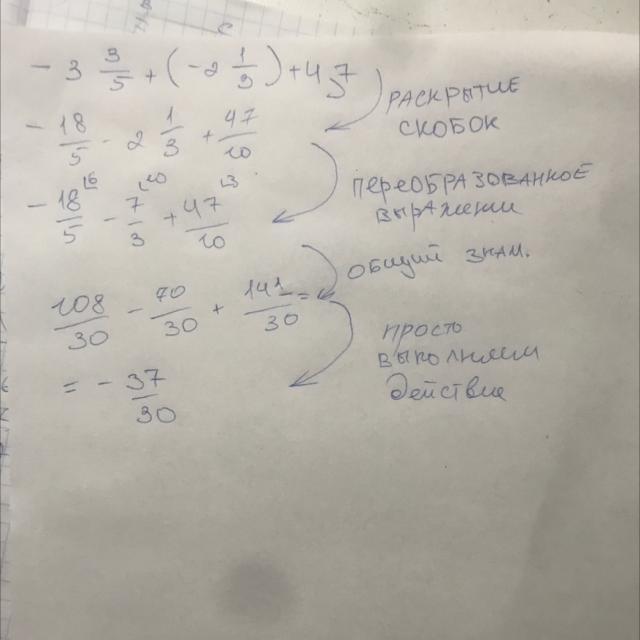 - 3 3/5 + (-2 1/3) + 4,7
РАСКРЫТИЕ
СКОБОК
- 18/5 - 2 1/3 + 47/10
ПЕРЕОБРАЗОВАННОЕ
ВЫРАЖЕНИИ
- 18/5 - 7/3 + 47/10
ОБЩИЙ ЗНАМ.
108/30 - 70/30 + 141/30 =
ПРОСТО
ВЫПОЛНЯЕМ
ДЕЙСТВИЕ
= - 37/30